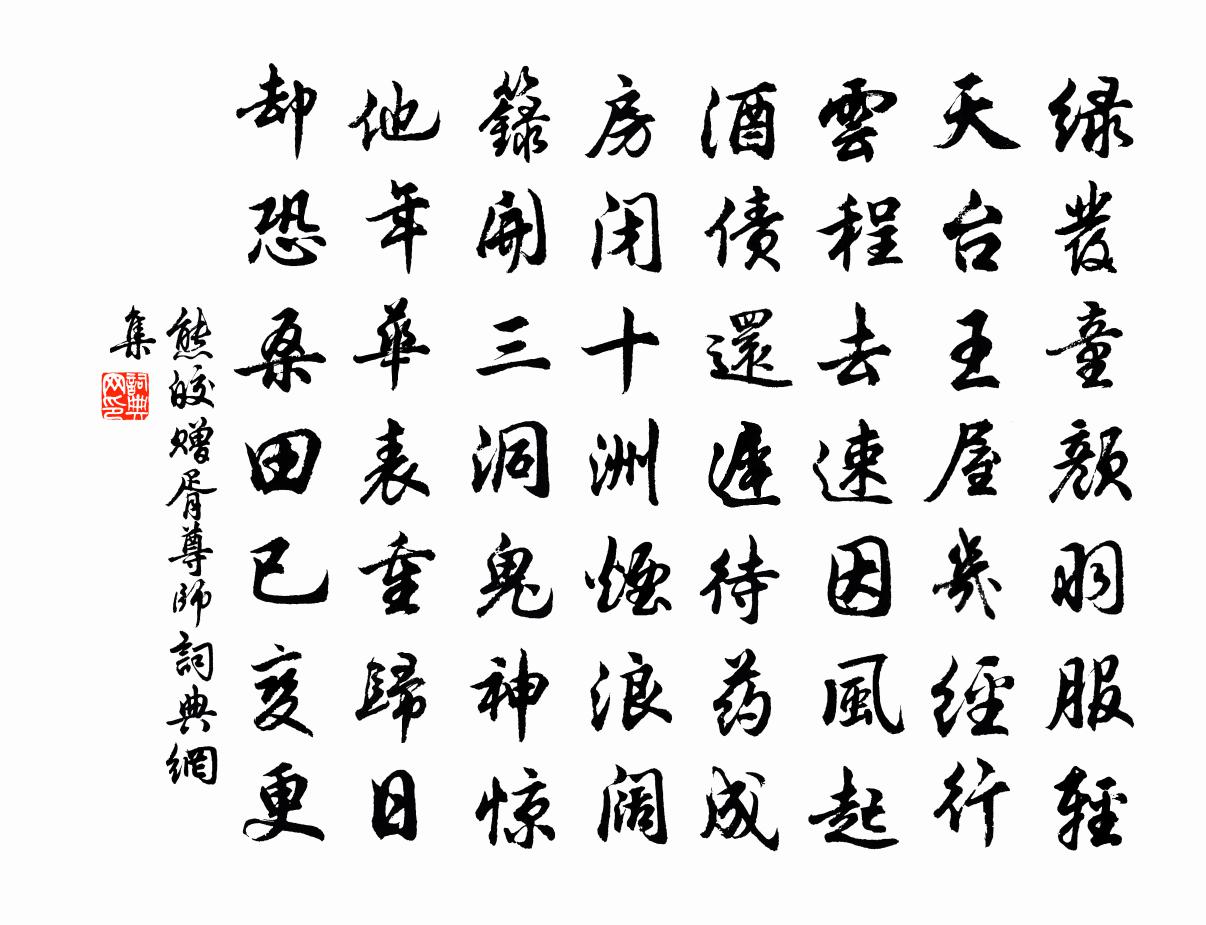 绿发童颜羽服轻
天台王屋几经行
雲程去速因風起
酒债還遲待药成
房闭十洲煙浪阔
籙開三洞鬼神惊
他年華表重歸日
却恐桑田已变更
熊皎赠胥尊师詞典網
集
詞典网印